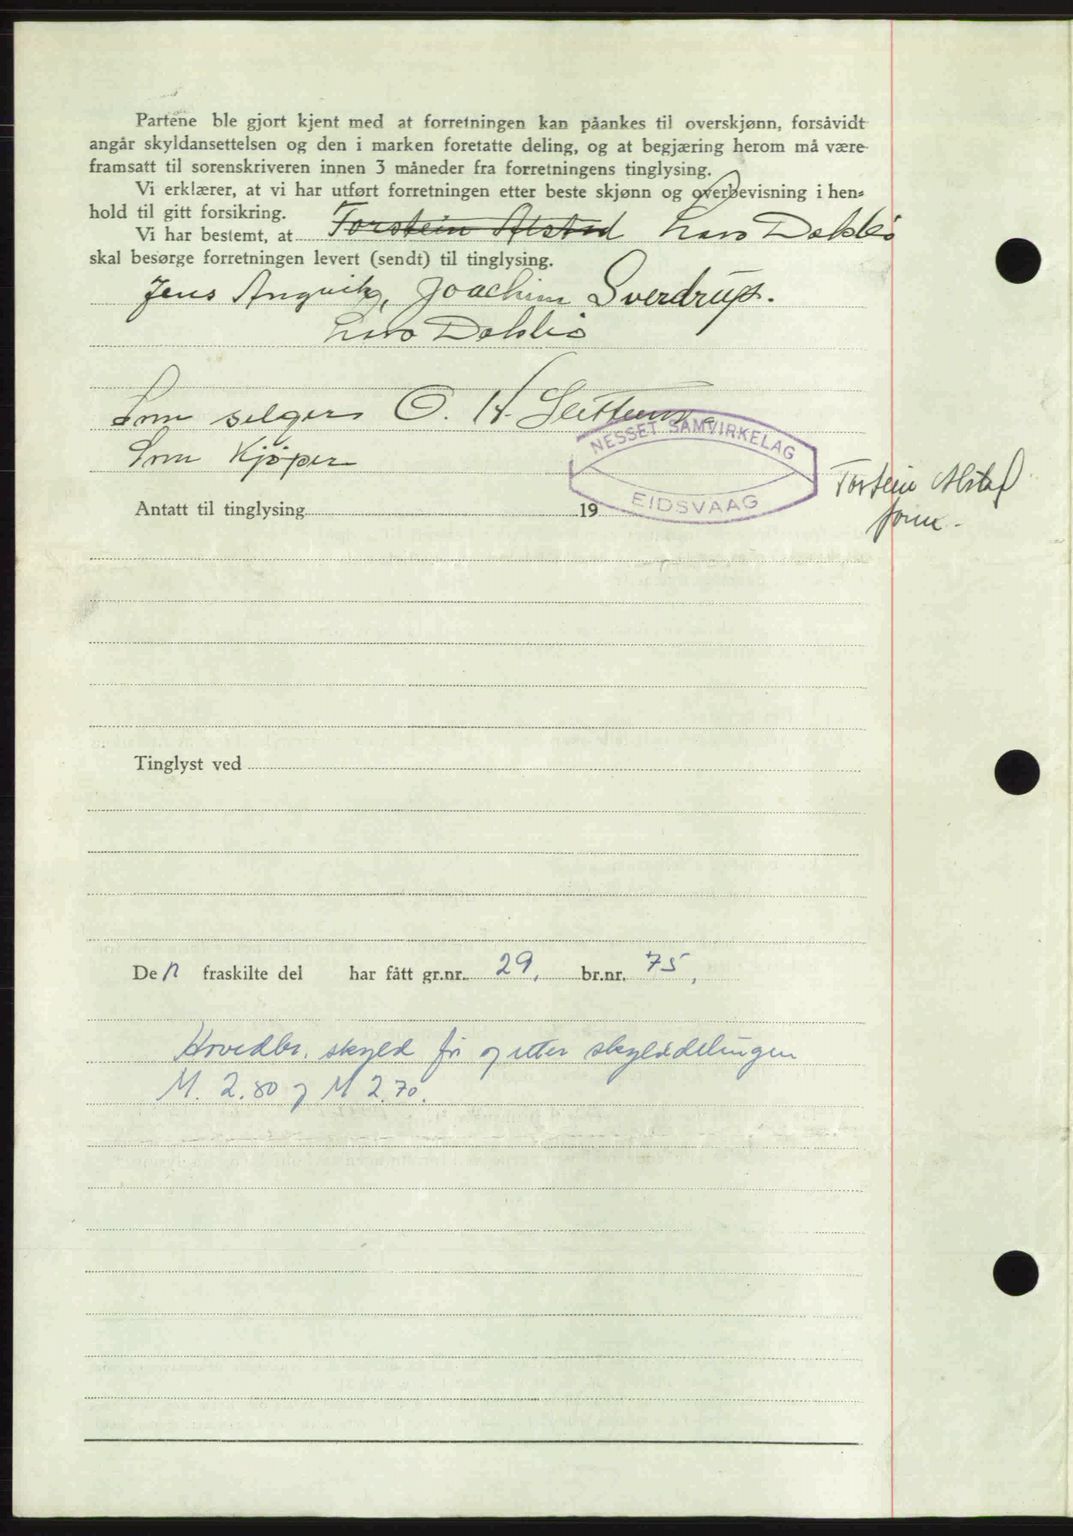 Partene ble gjort kjent med at forretningen kan påankes til overskjønn, forsåvidt
angår skyldansettelsen og den i marken foretatte deling, og at begjæring herom må være
framsatt til sorenskriveren innen 3 måneder fra forretningens tinglysing.
Vi erklærer, at vi har utført forretningen etter beste skjønn og overbevisning i hen-
hold til gitt forsikring.
Vi har bestemt, at Torstein Alstad Lars Dahlsø
skal besørge forretningen levert (sendt) til tinglysing.
Jens Angvik, Joachim Sverdrup.
Lars Dahlsø
Som selger O. H.
Som Kjöper
NESSET SAMVIRKELAG
EIDSVAAG
Torstein Alstad
form.
Antatt til tinglysing 19
Tinglyst ved
De n fraskilte del har fått gr.nr. 29, br.nr. 75,
Hovedbr. skyld før og etter skylddelingen
M. 2.80 og M 2.70.